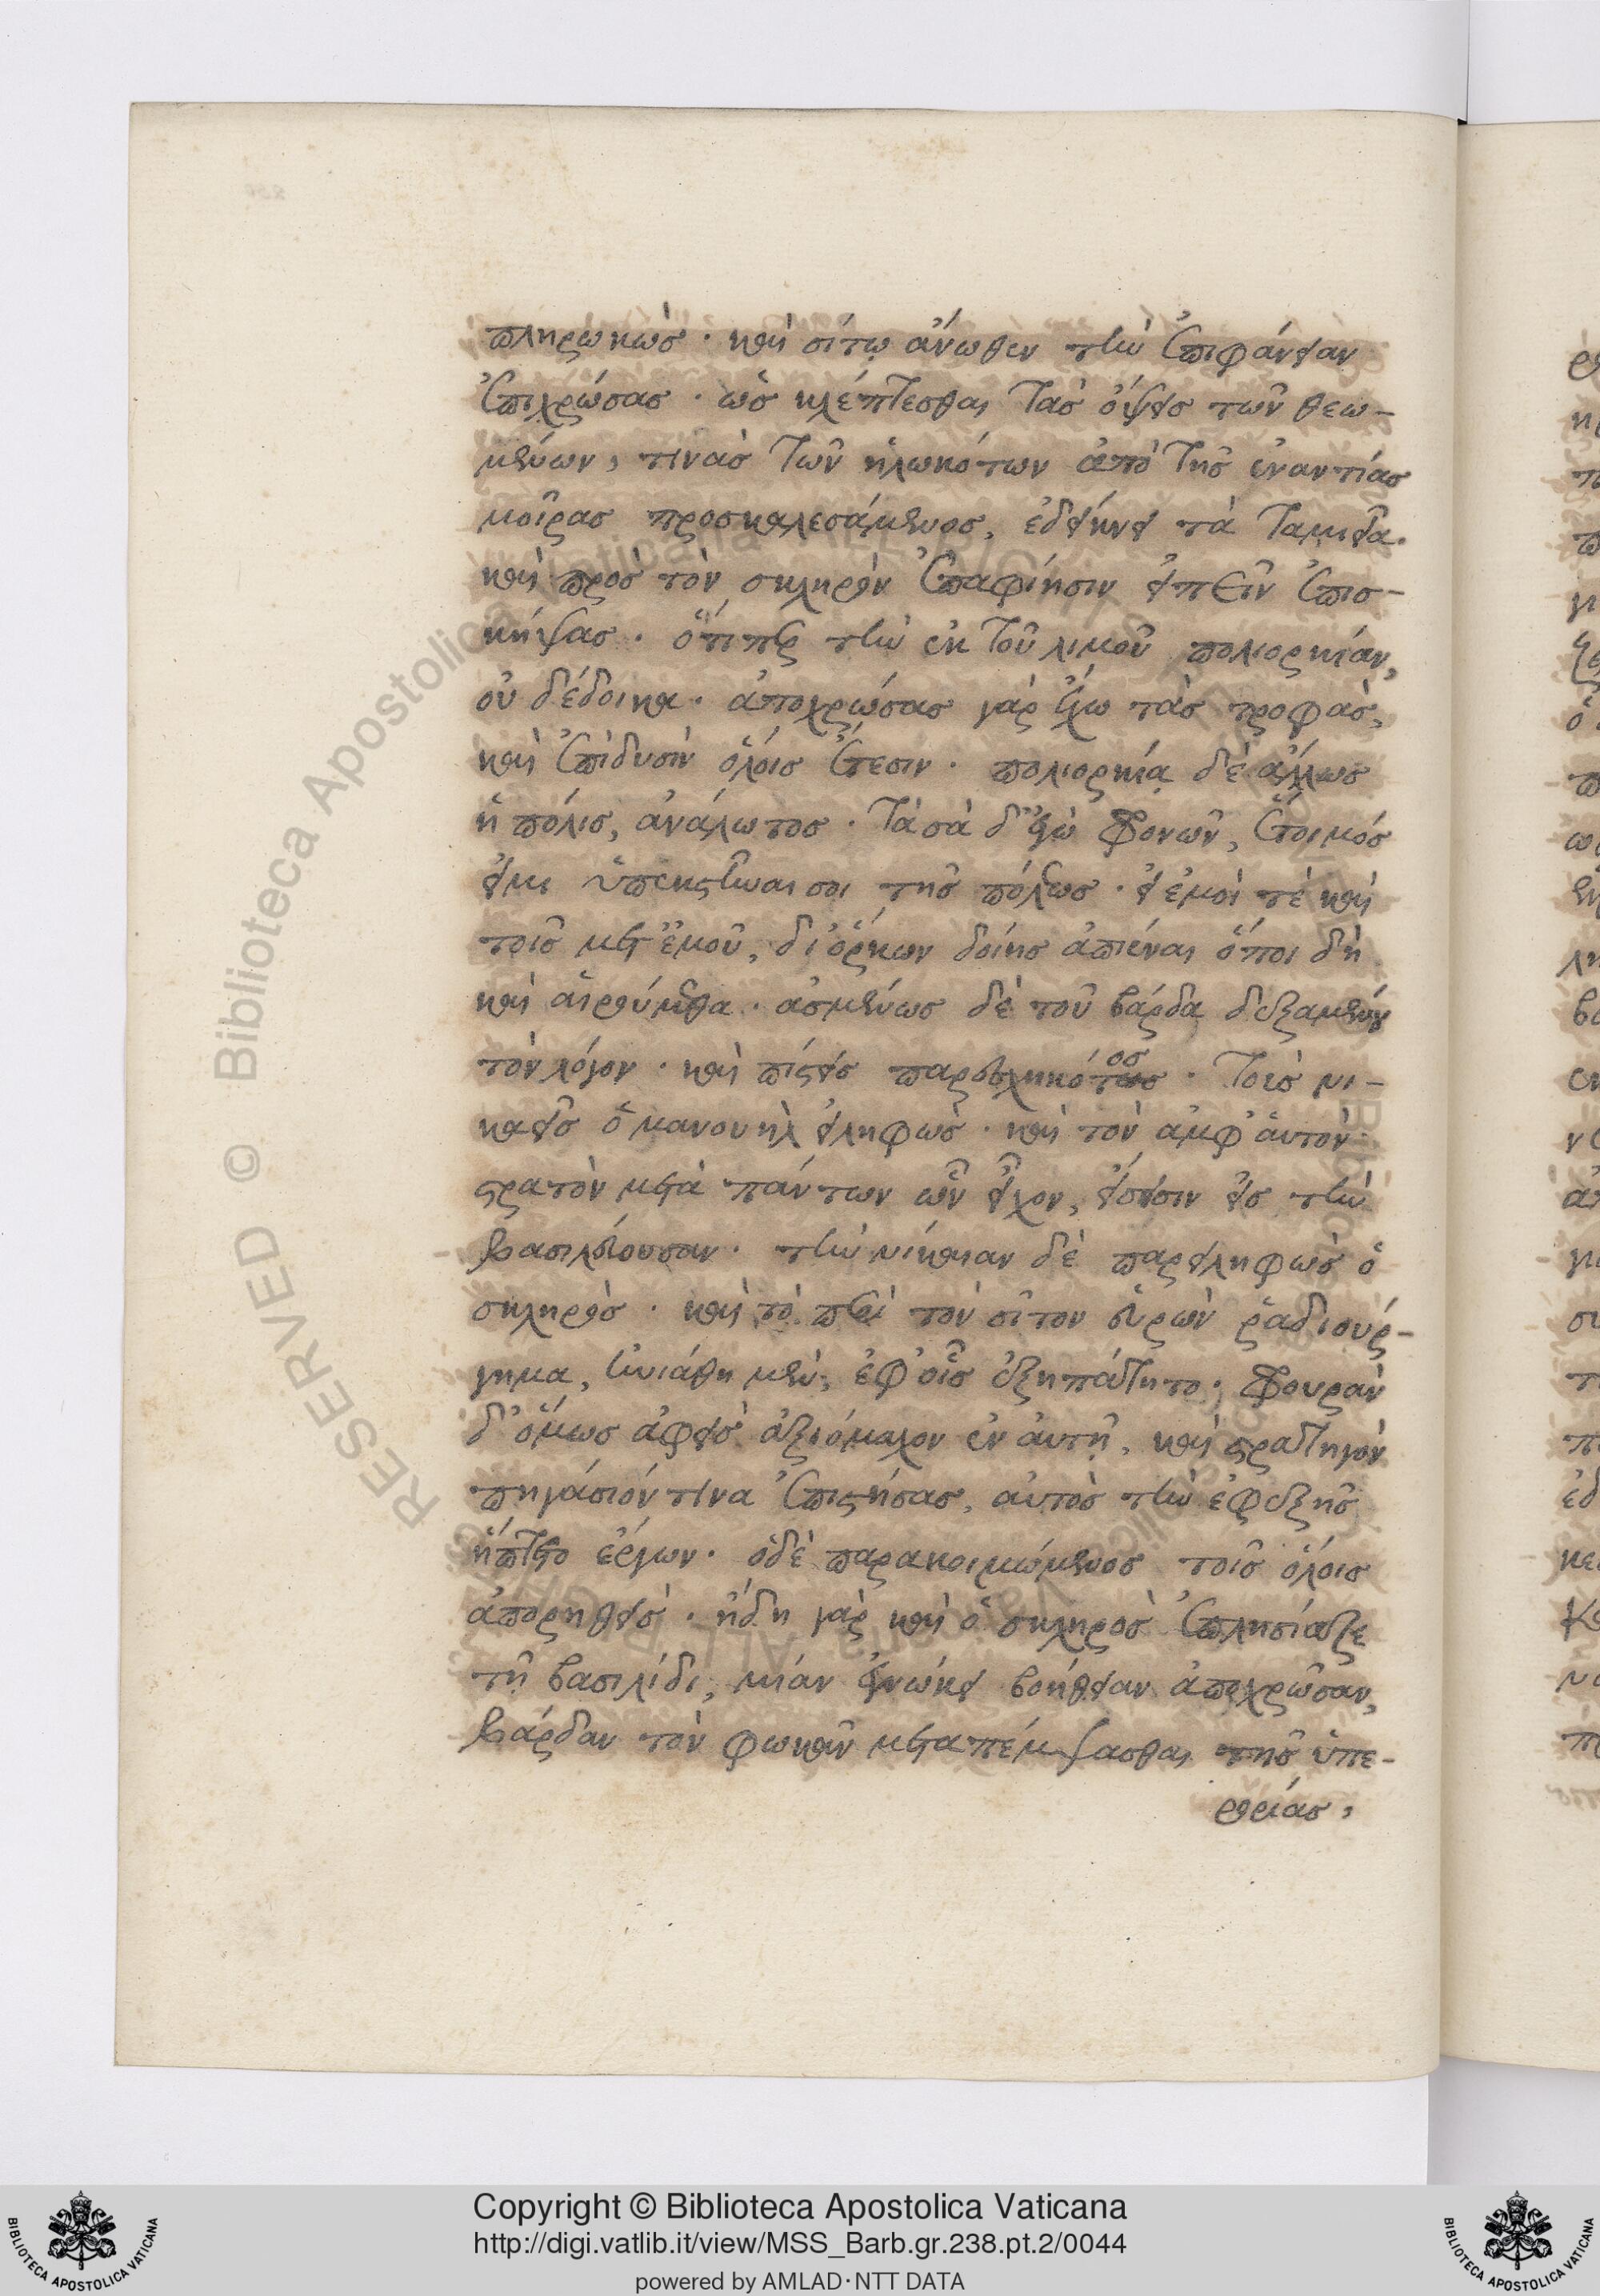 πληρωκὼς · καὶ σίτῳ ἄνωθεν τὴν ἐπιφάνειαν
ἐπιχρώσας · ὡς κλέπτεσθαι τὰς ὄψεις τῶν θεω-
μένων, τινὰς τῶν ἡλωκότων ἀπὸ τῆς ἐναντίας
μοῖρας προσκαλεσάμενος, ἐδείκνυ τὰ ταμιεῖα.
καὶ πρὸς τὸν σκληρὸν ἐπαφίησιν εἰπεῖν ἐπισ-
κήψας · ὅτι περ τὴν ἐκ τοῦ λιμοῦ πολιορκίαν,
οὐ δέδοικα · ἀποχρώσας γὰρ ἔχω τὰς τροφὰς,
καὶ ἐπὶ δυσὶν ὅλοις ἔτεσιν · πολιορκίᾳ δὲ ἄλλως
ἡ πόλις, ἀνάλωτος · τὰ σὰ δ' ἐγὼ φρονῶν, ἕτοιμός
εἰμι ὑπεκστῆναι σοι τῆς πόλεως · εἰ ἐμοὶ τὲ καὶ
τοῖς μετ' ἐμοῦ, δι' ὅρκων δοίης ἀπιέναι ὅποι δὴ
καὶ αἱρούμεθα · ἀσμένως δὲ τοῦ βάρδα δεξαμένου
τὸν λόγον · καὶ πίστεις παρεσχηκότος · τοὺς νι-
καεῖς ὁ μανουὴλ εἰληφὼς · καὶ τὸν ἀμφ' αὐτὸν
στρατὸν μετὰ πάντων ὧν εἶχον, εἴσεισιν εἰς τὴν
βασιλεύουσαν · τὴν νίκαιαν δὲ παρειληφὼς ὁ
σκληρὸς · καὶ τὸ περὶ τὸν σῖτον εὑρὼν ῥαδιούρ-
γημα, ἠνιάθη μὲν, ἐφ' οἷς ἐξηπάτητο · φρουρὰν
δ' ὅμως ἀφεὶς ἀξιόμαχον ἐν αὐτῇ, καὶ στρατηγὸν
πηγάσιόν τινα ἐπιστήσας, αὐτὸς τῶν ἐφεξῆς
ἥπτετο ἔργων · ὁ δὲ παρακοιμώμενος τοῖς ὅλοις
ἀπορηθεὶς · ἤδη γὰρ καὶ ὁ σκληρὸς ἐπλησίαζε
τῇ βασιλίδι, μίαν ἐγνώκει βοήθειαν ἀποχρῶσαν,
βάρδαν τὸν φωκᾶν μεταπέμψασθαι τῆς ὑπε-
ρορίας,
Copyright © Biblioteca Apostolica Vaticana
http://digi.vatlib.it/view/MSS_Barb.gr.238.pt.2/0044
powered by AMLAD·NTT DATA